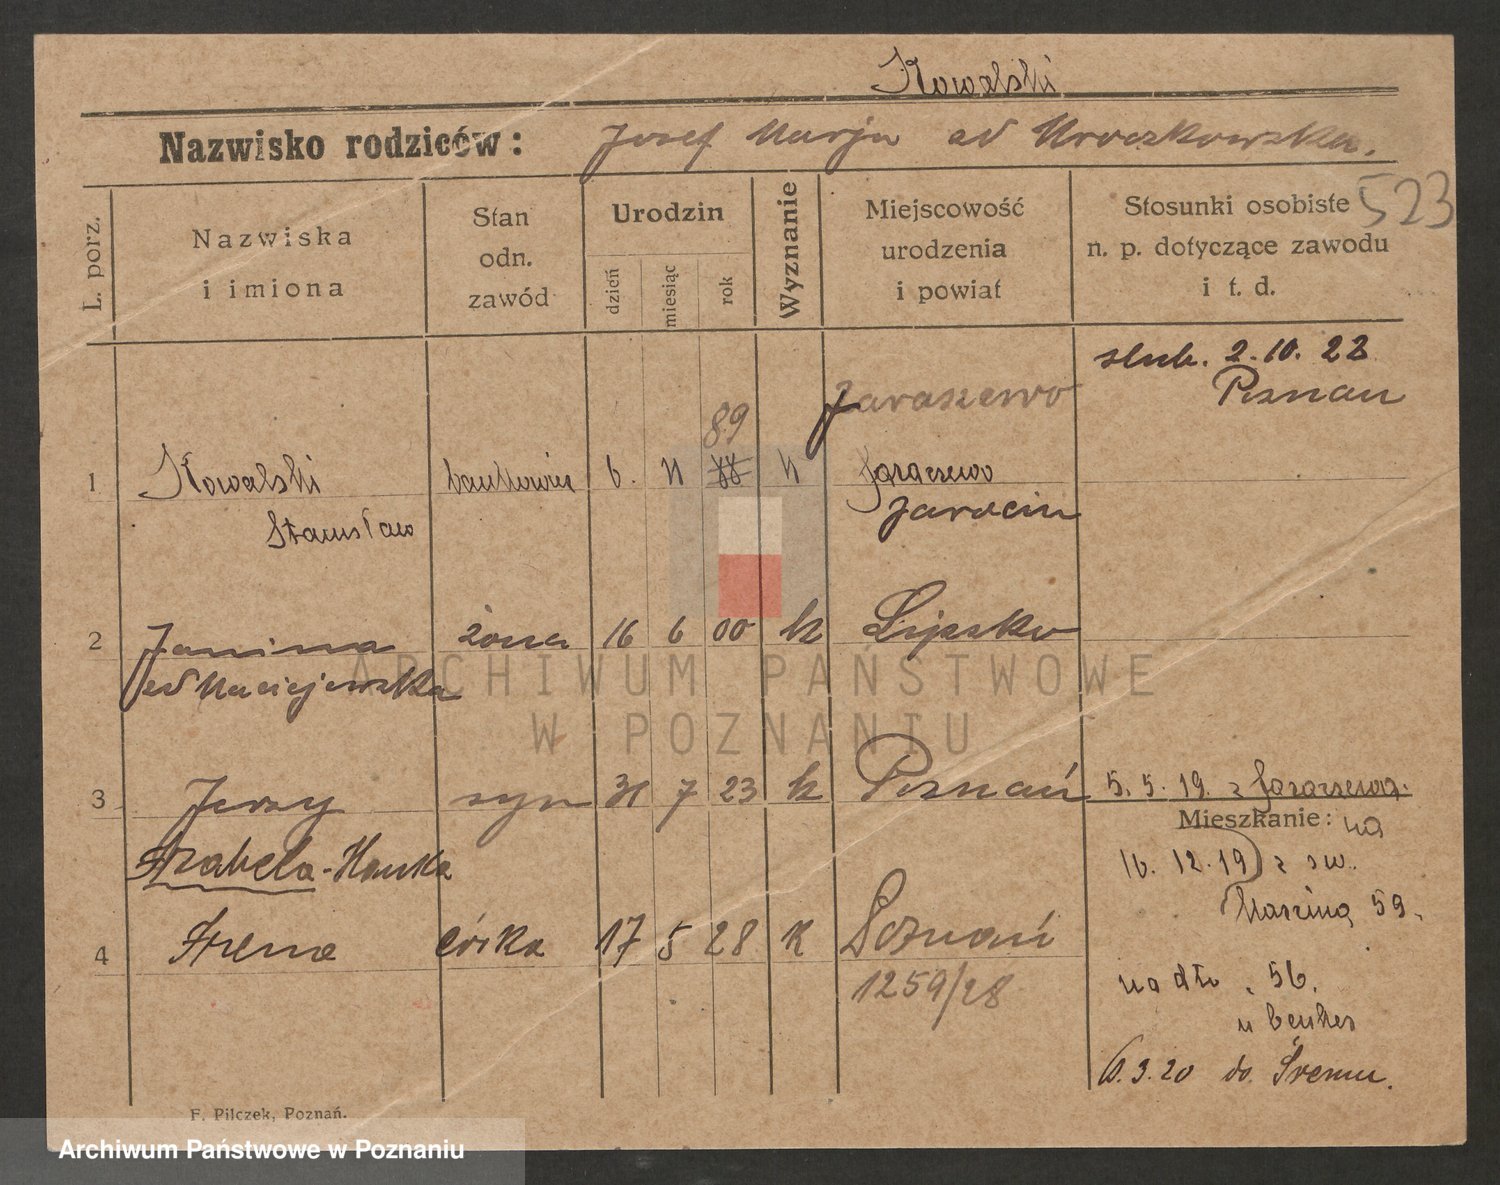 Kowalski
Nazwisko rodziców: Josef Marja
523
L. porz.
Nazwiska i imiona
Stan odn. zawód
Urodzin
dzień
miesiąc
rok
Wyznanie
Miejscowość urodzenia i powiat
Stosunki osobiste n. p. dotyczące zawodu i t. d.
2.10.22
Poznan
Jaraszewo
89
1 Kowalski 6. 11 88 k Jaraczewo
Stanisław Jarocin
2 Janina żona 16 6 00 k Lipsko
Maciejewska
3 Jerzy syn 31 7 23 k Poznań 5. 5. 19. z Jaraczewa.
Mieszkanie: na
Izabela-Hanka
16. 12. 19 z św.
Marcina 59.
4 Irena córka 17 5 28 k Poznań
1259/28
na 56.
u
3.20 do Śremu.
F. Pilczek, Poznań.
ARCHIWUM PAŃSTWOWE
W POZNANIU
Archiwum Państwowe w Poznaniu